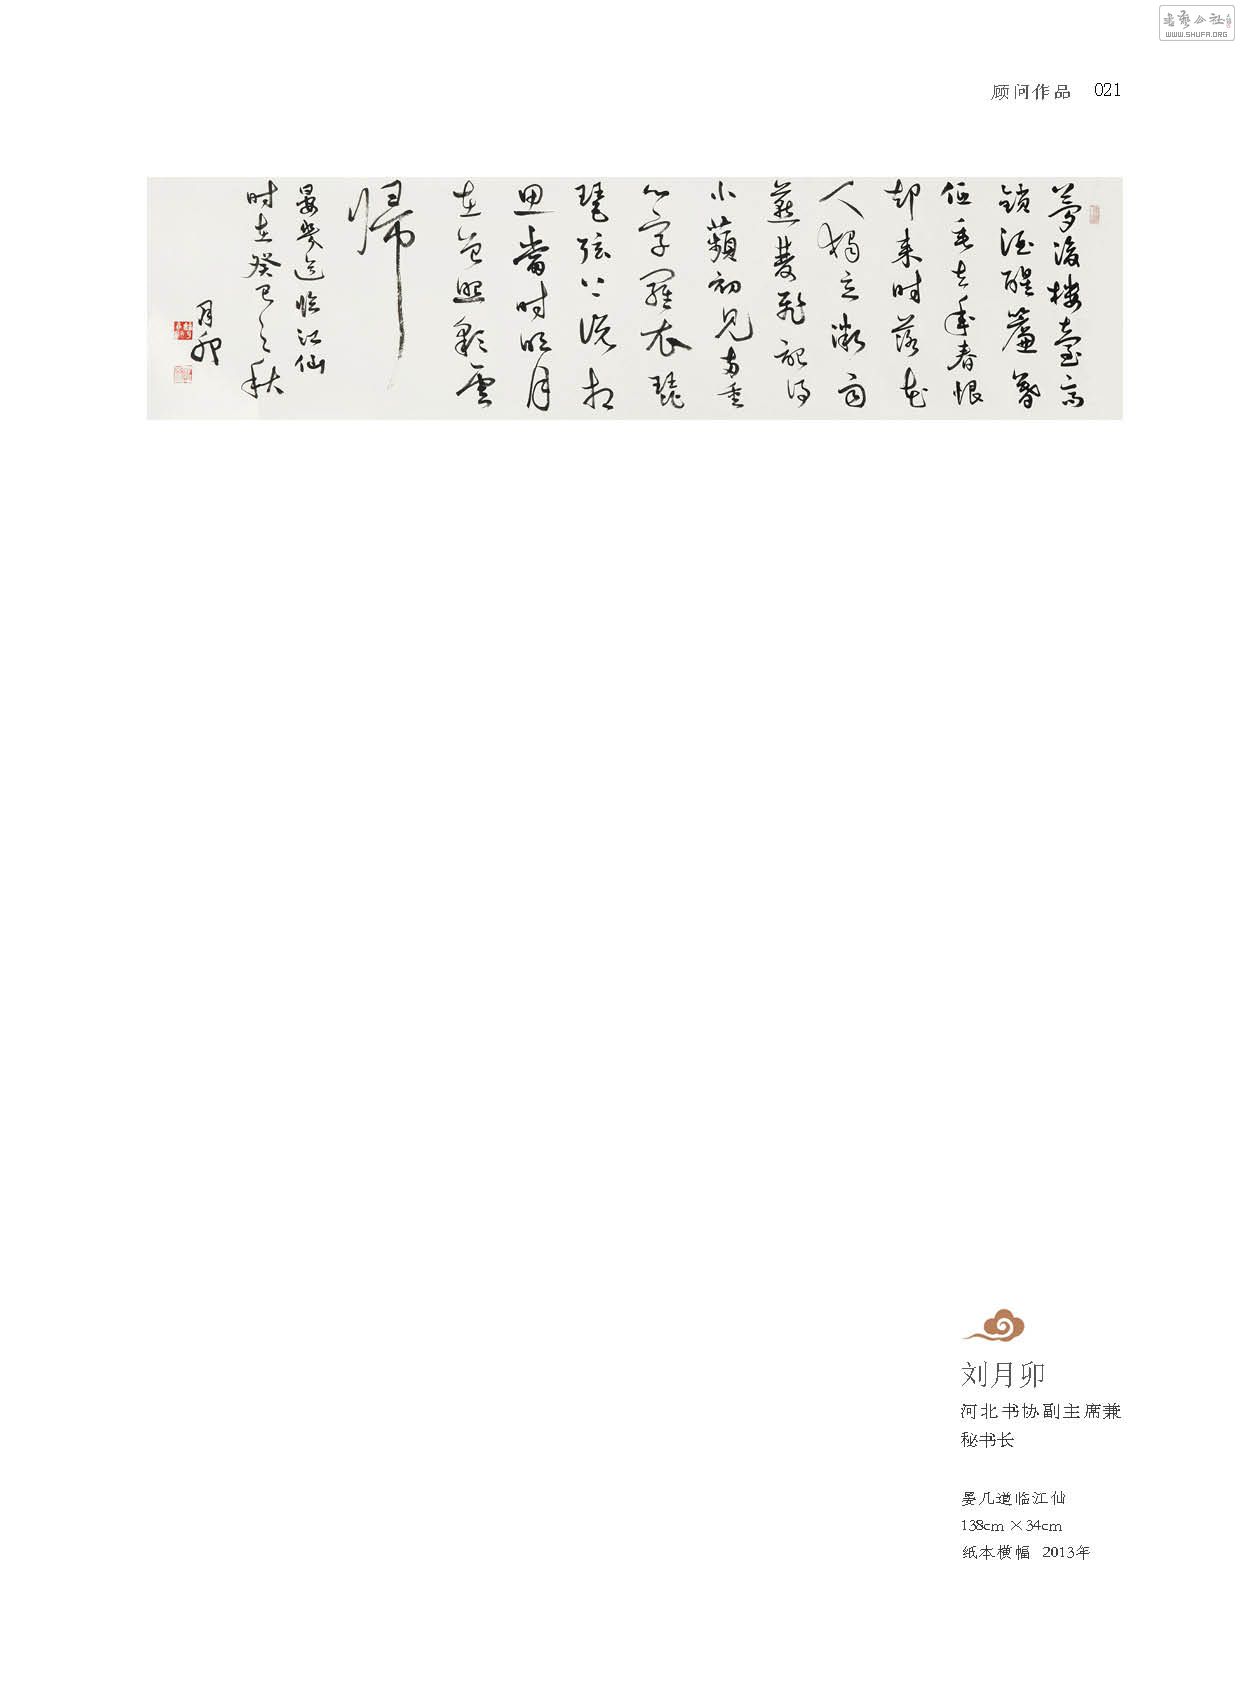 书艺公社
WWW.SHUFA.ORG
顾问作品 021
夢後楼臺高
鎖酒醒簾幕
低垂去年春恨
却来时落花
人獨立微雨
燕雙飛記得
小蘋初見兩重
心字羅衣琵
琶弦上说相
思當时明月
在曾照彩雲
歸
晏幾道临江仙
时在癸巳之秋
月卯
刘月卯
河北书协副主席兼
秘书长
晏几道临江仙
138cm×34cm
纸本横幅 2013年